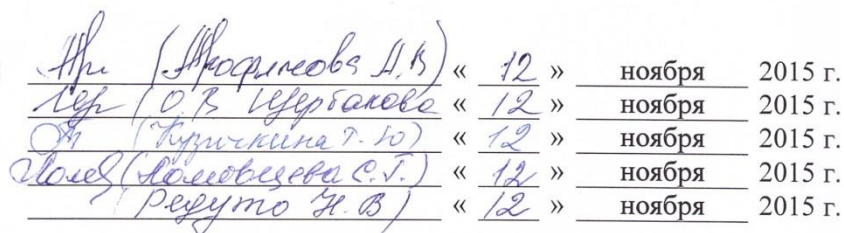 (Трофимова А.В) « 12 » ноября 2015 г.
(О.В Щербакова « 12 » ноября 2015 г.
(Кузичкина Т.Ю) « 12 » ноября 2015 г.
(С.Г.) « 12 » ноября 2015 г.
(Редуто Н.В) « 12 » ноября 2015 г.